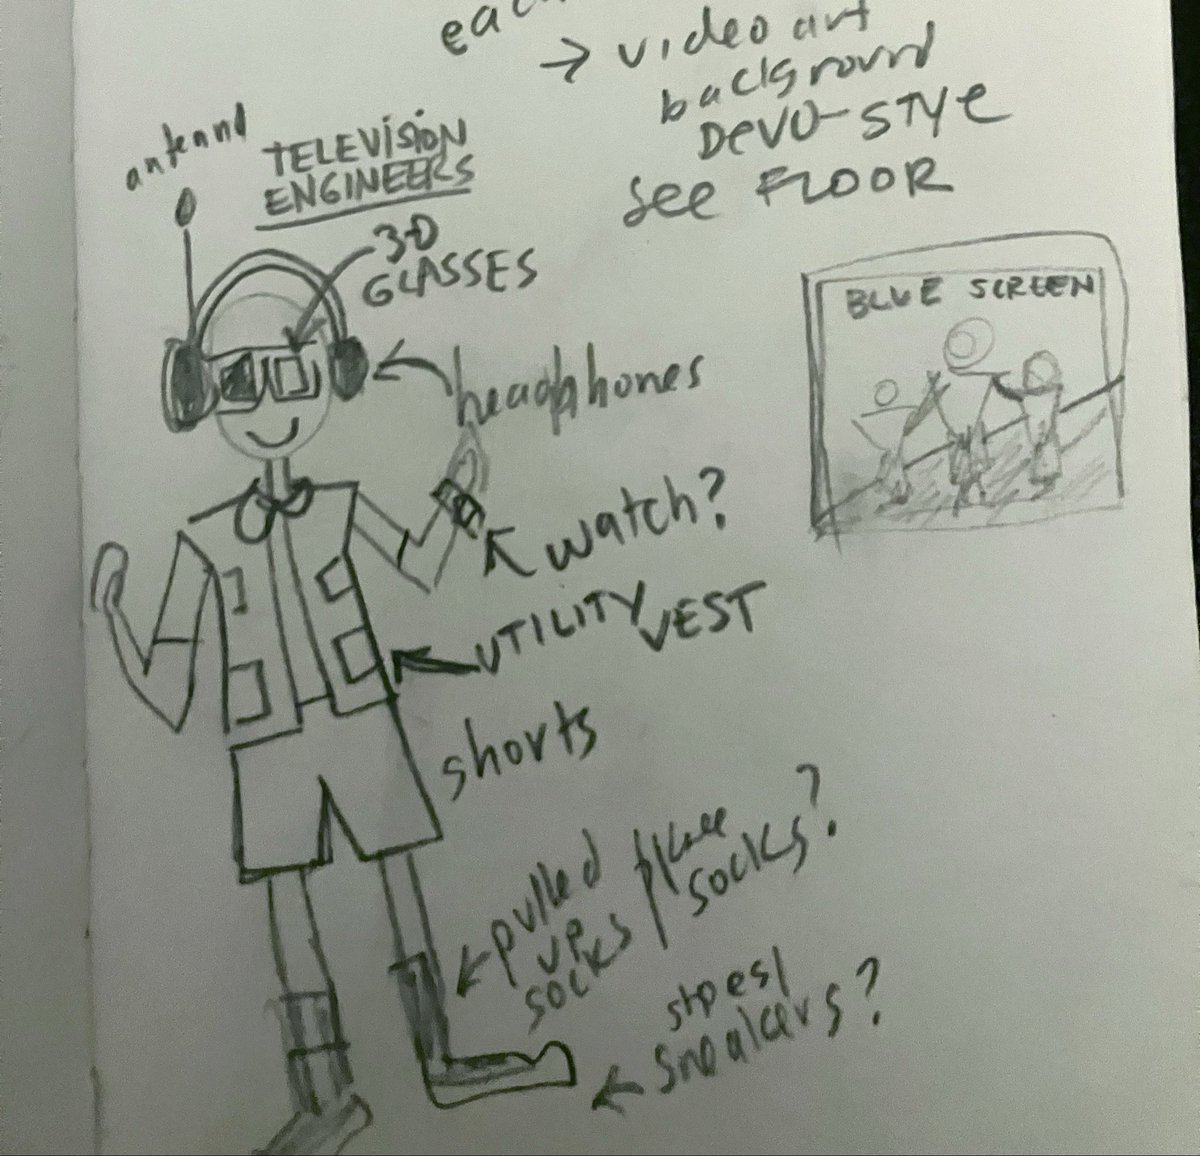 → video art
background
DEVO-STYE
See FLOOR
antenna
TELEVISION
ENGINEERS
3-D
GLASSES
headphones
BLUE SCREEN
watch?
UTILITY VEST
shorts
pulled
up
socks / knee
socks?
sneakers?